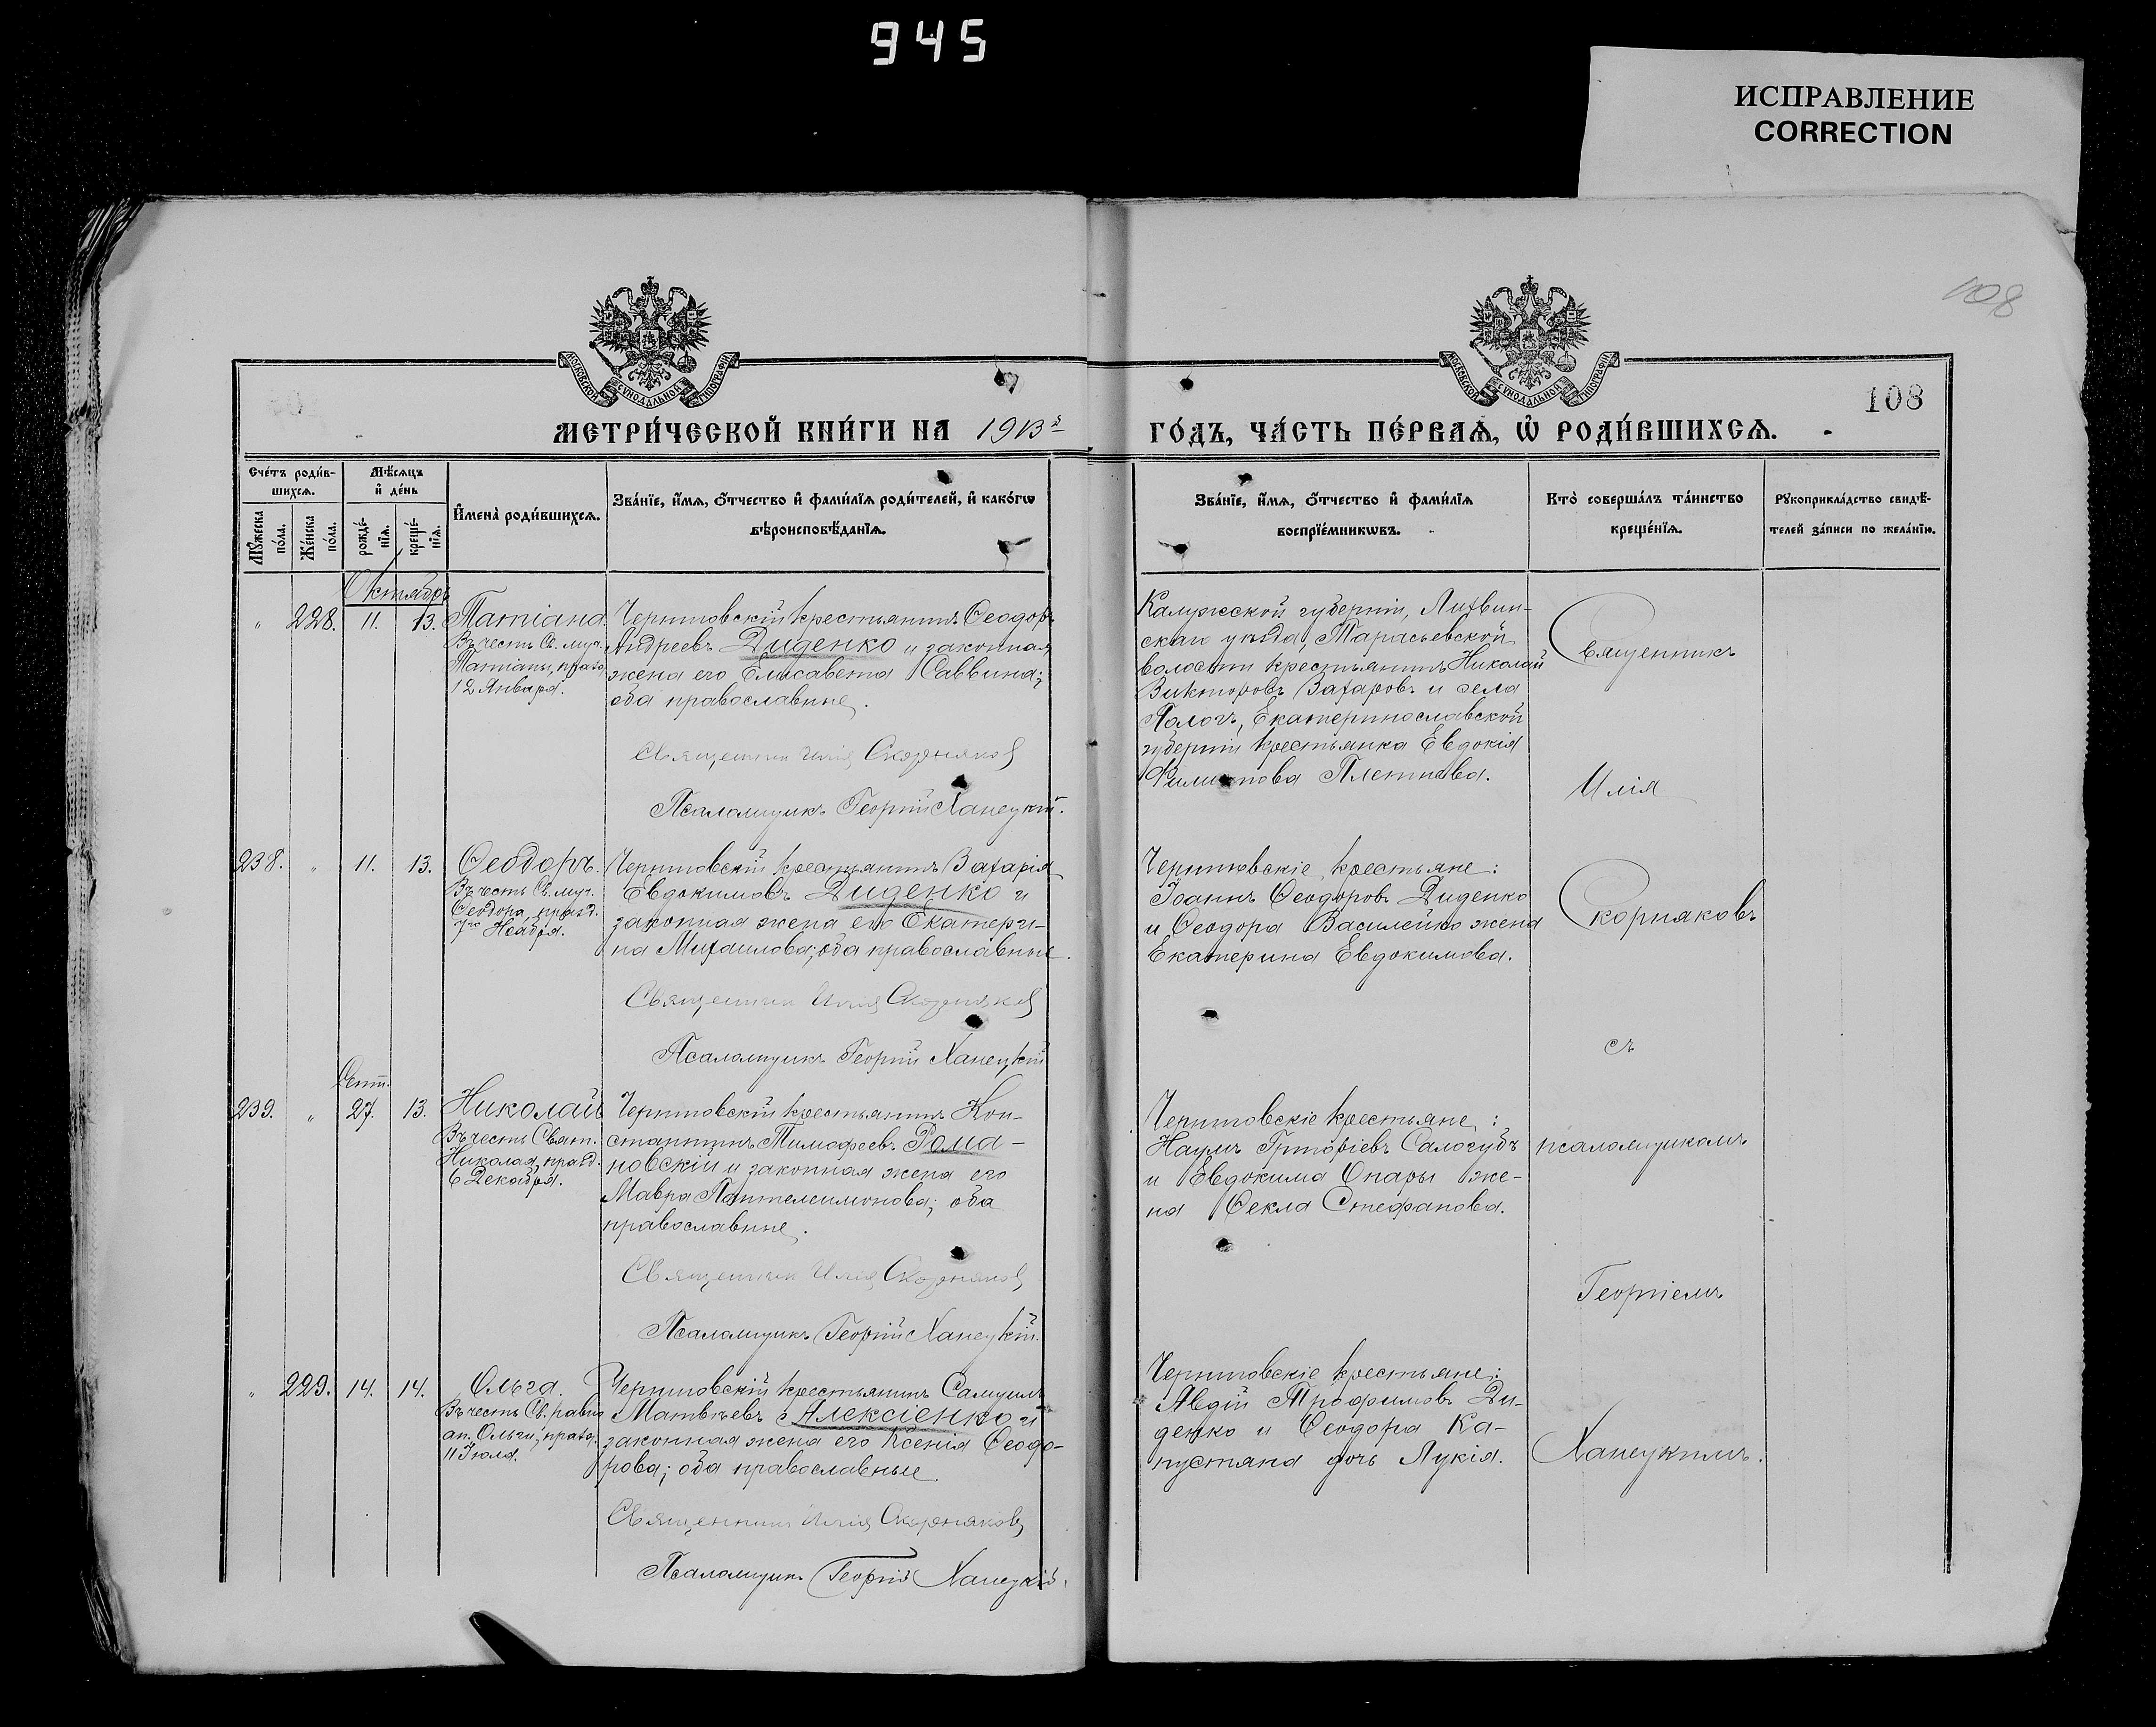 945
ИСПРАВЛЕНИЕ
CORRECTION
108
108
МЕТРИ́ЧЕСКОЙ КНИ́ГИ НА 1913й
ГО́ДЪ, ЧА́СТЬ ПЕ́РВАѦ, Ѡ҆ РОДИ́ВШИХСѦ.
Сче́тъ роди́в-
шихсѧ.
Мѣ́сѧцъ
и҆ де́нь
Мꙋ́жеска
по́ла.
Же́нска
по́ла.
рожде́-
нїѧ.
креще́-
нїѧ.
И҆мена̀ роди́вшихсѧ.
Зва́нїе, и҆́мѧ, ѻ҆́тчество и҆ фами́лїѧ роди́телей, и҆ како́гѡ
вѣроисповѣ́данїѧ.
Зва́нїе, и҆́мѧ, ѻ҆́тчество и҆ фами́лїѧ
воспрїе́мникѡвъ.
Кто̀ соверша́лъ та́инство
креще́нїѧ.
Рꙋкоприкла́дство свидѣ́-
телей за́писи по жела́нїю.
Октябрь
" 228. 11. 13. Татіана.
Въ честь Св. муч.
Татіаны, празд.
12 Января.
Черниговскій крестьянинъ Ѳеодоръ
Андреевъ Диденко и законная
жена его Елисавета Саввина;
оба православные.
Священникъ Илія Скорняковъ
Псаломщикъ Георгій Ханецкій.
Калужской губерніи, Лихвин-
скаго уѣзда,
волости крестьянинъ Николай
Викторовъ Захаровъ и села
Пологъ, Екатеринославской
губерніи крестьянка Евдокія
Филиппова
Священникъ
Илія
238. " 11. 13. Ѳеодоръ.
Въ честь Св. муч.
Ѳеодора, празд.
7го Ноября.
Черниговскій крестьянинъ Захарія
Евдокимовъ Диденко и
законная жена его Екатери-
на Михаилова; оба православные.
Священникъ Илія Скорняковъ
Псаломщикъ Георгій Ханецкій
Черниговскіе крестьяне:
Іоаннъ Ѳеодоровъ Диденко
и Ѳеодора Василейко жена
Екатерина Евдокимова.
Скорняковъ
съ
Сент.
239. " 27. 13. Николай
Въ честь Свят.
Николая, празд.
6 Декабря.
Черниговскій крестьянинъ Кон-
стантинъ Тимофеевъ Рома-
новскій и законная жена его
Мавра Пантелеимонова; оба
православные.
Священникъ Илія Скорняковъ
Псаломщикъ Георгій Ханецкій.
Черниговскіе крестьяне:
Наумъ Григоріевъ Салогубъ
и Евдокима Опары же-
на Ѳекла Стефанова.
псаломщикомъ
Георгіемъ
" 229. 14. 14. Ольга.
Въ честь Св. равно
ап. Ольги, празд.
11 Іюля.
Черниговскій крестьянинъ Самуилъ
Матвѣевъ Алексіенко и
законная жена его Ксенія Ѳеодо-
рова; оба православные.
Священникъ Илія Скорняковъ
Псаломщикъ Георгій Ханецкій.
Черниговскіе крестьяне:
Авдій Трофимовъ Ди-
денко и Ѳеодора Ка-
пустяна дочь Лукія.
Ханецкимъ.